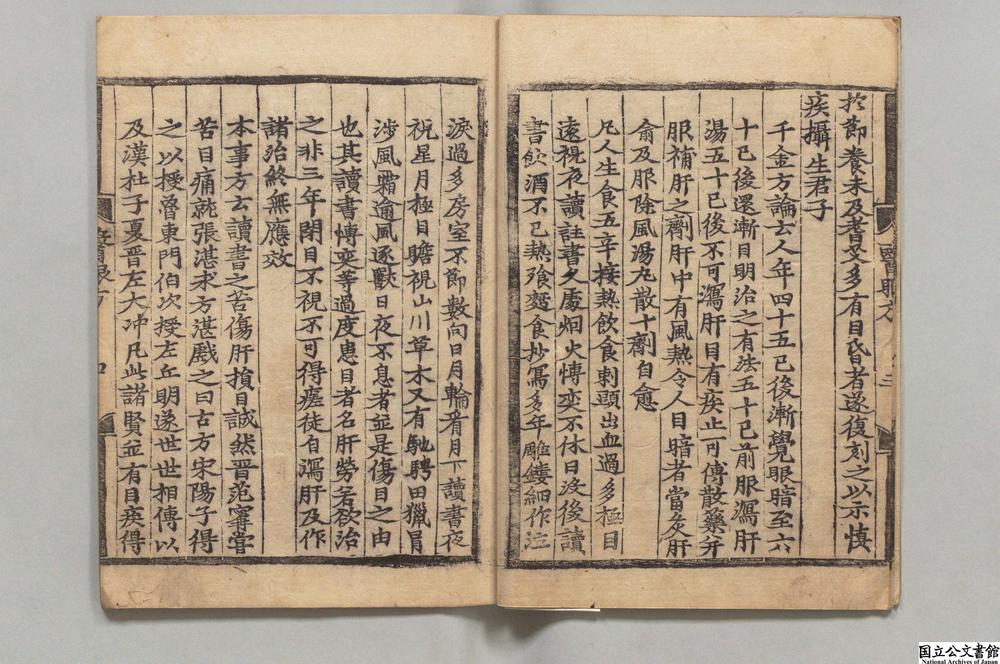 於節養未及耆艾多有目昏者遂復刻之以示慎
疾攝生君子
千金方論云人年四十五已後漸覺眼暗至六
十已後還漸目明治之有法五十已前服瀉肝
湯五十已後不可瀉肝目有疾止可傅散藥并
服補肝之劑肝中有風熱令人目暗者當灸肝
俞及服除風湯丸散十劑自愈
凡人生食五辛接熱飲食刺頭出血過多極目
遠視夜讀註書久處烟火博奕不休日没後讀
書飲酒不已熱飱麵食抄寫多年雕鏤細作泣
淚過多房室不節數向日月輪看月下讀書夜
視星月極目瞻視山川草木又有馳騁田獵冐
涉風霜逾風逐獸日夜不息者並是傷目之由
也其讀書博奕等過度患目者名肝勞若欲治
之非三年閉目不視不可得瘥徒自瀉肝及作
諸治終無應效
本事方云讀書之苦傷肝損目誠然晋范寗嘗
苦目痛就張湛求方湛戲之曰古方宋陽子得
之以授魯東門伯次授左丘明遂世世相傳以
及漢杜子夏晋左大冲凡此諸賢並有目疾得
醫眼方
三
四
国立公文書館
National Archives of Japan